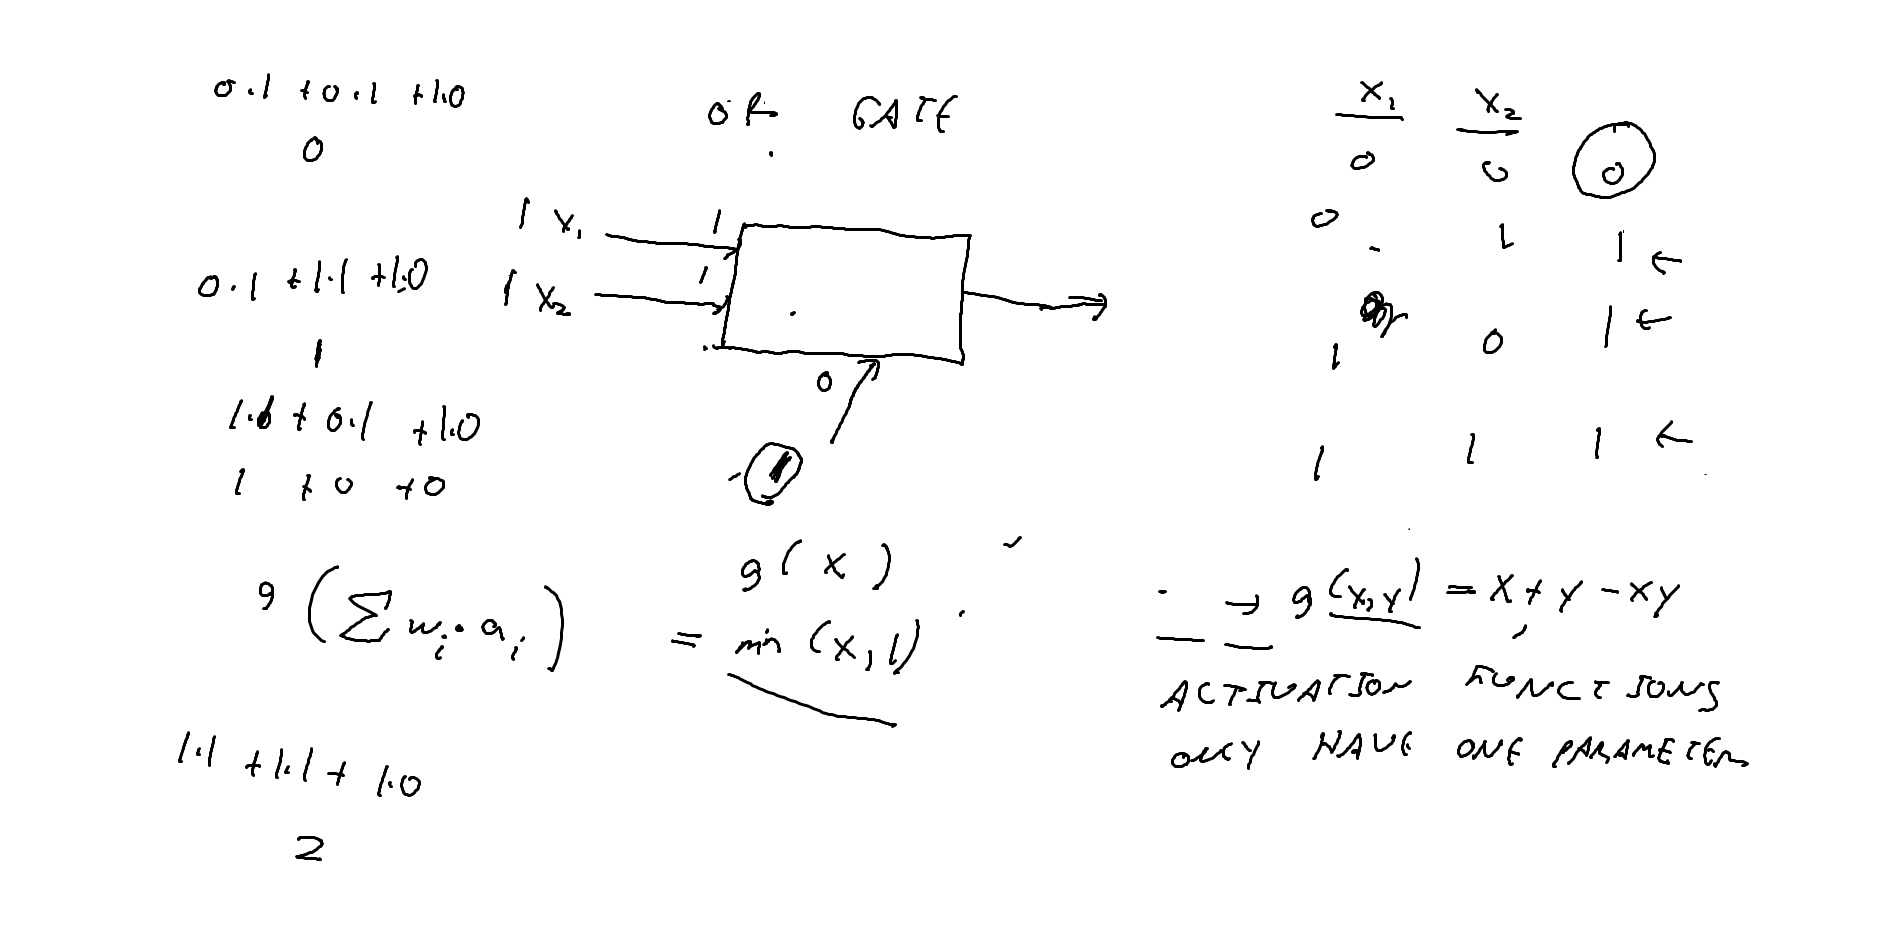 0.1 + 0.1 + 1.0
0
0.1 + 1.1 + 1.0
1
+ 0.1 + 1.0
1 + 0 + 0
g ( ∑ wᵢ • aᵢ )
1.1 + 1.1 + 1.0
2
OR GATE
1 X₁ 1
1 X₂ 1
0
g ( x )
= min (x, 1)
X₁ X₂
0 0 0
0 1 1 ←
1 0 1 ←
1 1 1 ←
→ g (x, y) = x + y - xy
ACTIVATION FUNCTIONS
ONLY HAVE ONE PARAMETER